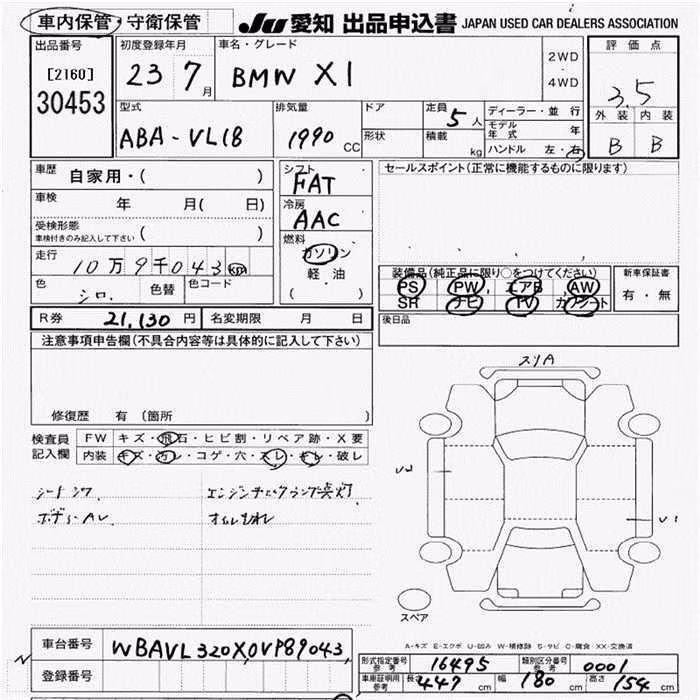 車内保管・守衛保管 JU 愛知 出品申込書 JAPAN USED CAR DEALERS ASSOCIATION
出品番号 初度登録年月 車名・グレード 2WD・4WD 評価点
[2160] 23 7月 BMW X1 3.5
30453 型式 排気量 ドア 定員 5人 ディーラー・並行 外装 内装
ABA-VL18 1990 CC 形状 積載 kg モデル年式 年 B B
ハンドル 左・右
車歴 自家用・( ) シフト FAT セールスポイント(正常に機能するものに限ります)
車検 年 月( 日) 冷房 AAC
受検形態 ( )
車検付きのみ記入して下さい
燃料 ガソリン 軽油 ( )
走行 10万9千043km
装備品(純正品に限り○をつけてください) 新車保証書
色 シロ. 色替 色コード PS PW エアB AW 有・無
SR ナビ TV カワシート
R券 21,130円 名変期限 月 日 後日品
注意事項申告欄(不具合内容等は具体的に記入して下さい)
スリA
修復歴 有(箇所 )
検査員記入欄 FW キズ・飛石・ヒビ割・リペア跡・X要
内装 キズ・汚レ・コゲ・穴・スレ・キレ・破レ
シートシワ エンジンチェックランプ点灯
ボディーAU オイルもれ
U2
U1
スペア
車台番号 WBAVL320X0VP89043
登録番号
A-キズ E-エクボ U-凹み W-補修跡 S-サビ C-腐食 XX-交換済
形式指定番号 参考 16495 類別区分番号 参考 0001
車庫証明用 参考 長さ 447 cm 幅 180 cm 高さ 154 cm